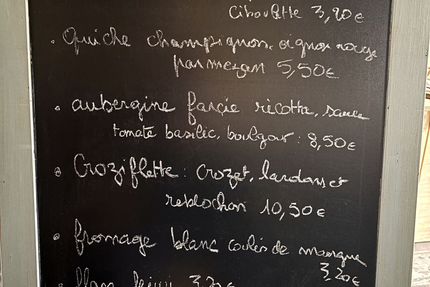 Ciboulette 3,90€
• Quiche champignon, oignon rouge
parmezan 5,50€
• aubergine farçie ricotta, sauce
tomate basilic, boulgour : 8,50€
• Croziflette : Crozet, lardons et
reblochon 10,50€
• fromage blanc coulis de mangue
3,20€
3,20€